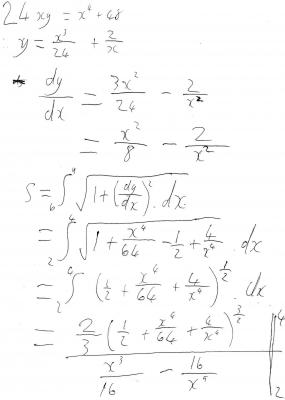 24xy = x⁴ + 48
∴ y = x³/24 + 2/x
dy/dx = 3x²/24 - 2/x²
= x²/8 - 2/x²
S = ∫_b^a √(1 + (dy/dx)²) . dx
= ∫_2^4 √(1 + x⁴/64 - 1/2 + 4/x⁴) . dx
= ∫_2^4 (1/2 + x⁴/64 + 4/x⁴)^(1/2) . dx
= 2/3 (1/2 + x⁴/64 + 4/x⁴)^(3/2) / (x³/16 - 16/x⁴) |_2^4